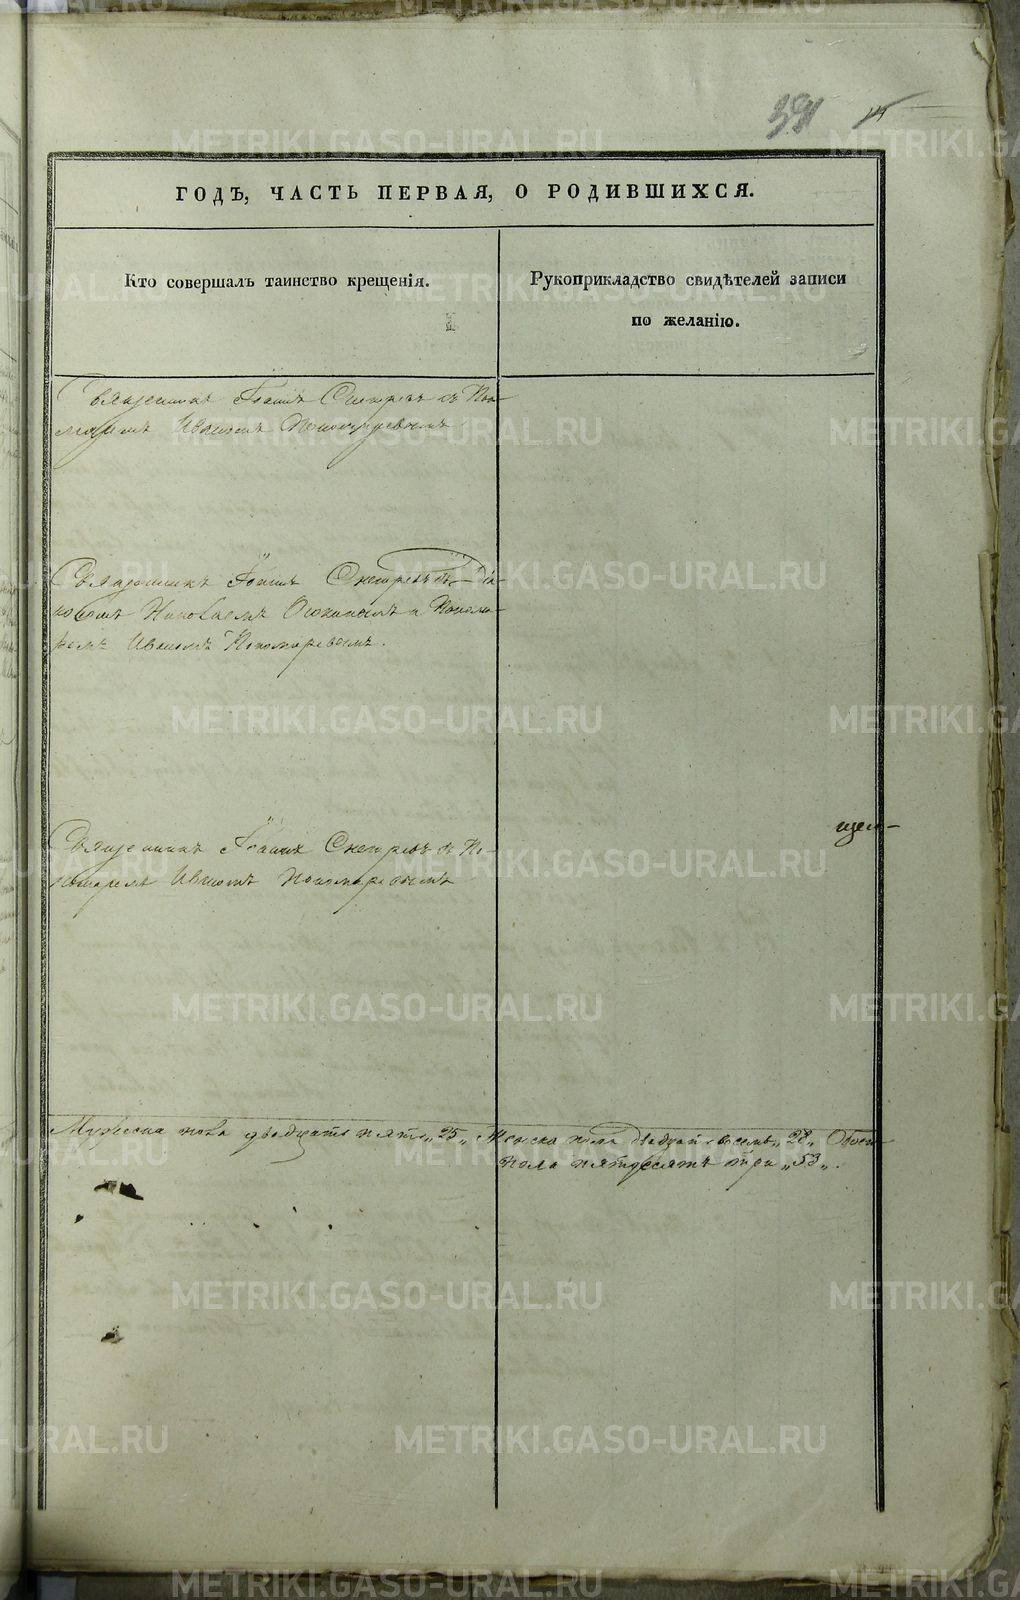 391
ГОДЪ, ЧАСТЬ ПЕРВАЯ, О РОДИВШИХСЯ.
Кто совершалъ таинство крещенія.
Рукоприкладство свидѣтелей записи
по желанію.
Священникъ Іоаннъ съ Поно-
маремъ Иваномъ Пономаревымъ
Священникъ Іоаннъ съ Діа-
кономъ Николаемъ и Понома-
ремъ Иваномъ Пономаревымъ.
Священникъ Іоаннъ съ По-
номаремъ Иваномъ Пономаревымъ
щен-
Мужеска пола двадцать пять „25„ Женска пола двадцать восемь „28„ Обоего
пола пятдесятъ три „53„.
METRIKI.GASO-URAL.RU